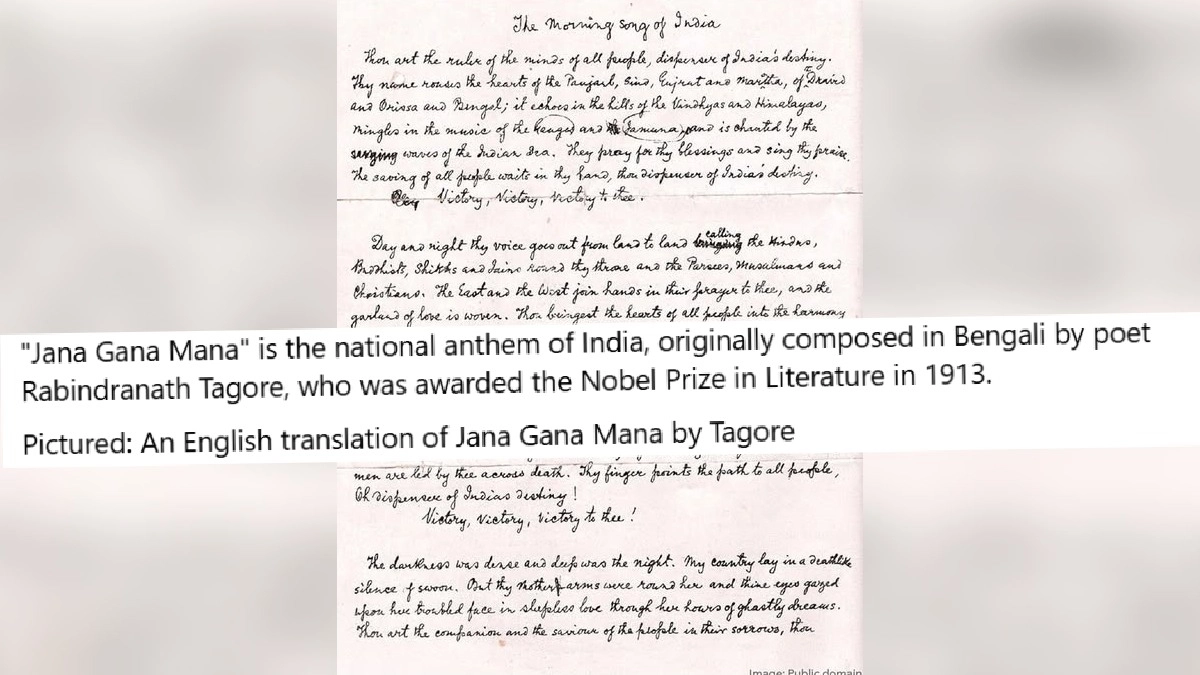 The Morning song of India
Thou art the ruler of the minds of all people, dispenser of India's destiny.
Thy name rouses the hearts of the Panjab, Sind, Gujrat and Maratha, of Dravid
and Orissa and Bengal; it echoes in the hills of the Vindhyas and Himalayas,
mingles in the music of the and Jamuna and is chanted by the
waves of the Indian Sea. They pray for thy blessings and sing thy praise.
The saving of all people waits in thy hand, thou dispenser of India's destiny.
Victory, Victory, Victory to thee.
Day and night thy voice goes out from land to land calling the Hindus,
Buddhists, Shikhs and Jains round thy throne and the Parsees, Musulmans and
Christians. The East and the West join hands in their prayer to thee, and the
garland of love is woven. Thou bringest the hearts of all people into the harmony
"Jana Gana Mana" is the national anthem of India, originally composed in Bengali by poet
Rabindranath Tagore, who was awarded the Nobel Prize in Literature in 1913.
Pictured: An English translation of Jana Gana Mana by Tagore
men are led by thee across death. Thy finger points the path to all people,
Oh dispenser of Indias destiny!
Victory, Victory, Victory to thee!
The darkness was dense and deep was the night. My country lay in a deathlike
silence of swoon. But thy mother arms were round her and thine eyes gazed
upon her troubled face in sleepless love through her hours of ghastly dreams.
Thou art the companion and the saviour of the people in their sorrows, thou
Image: Public domain